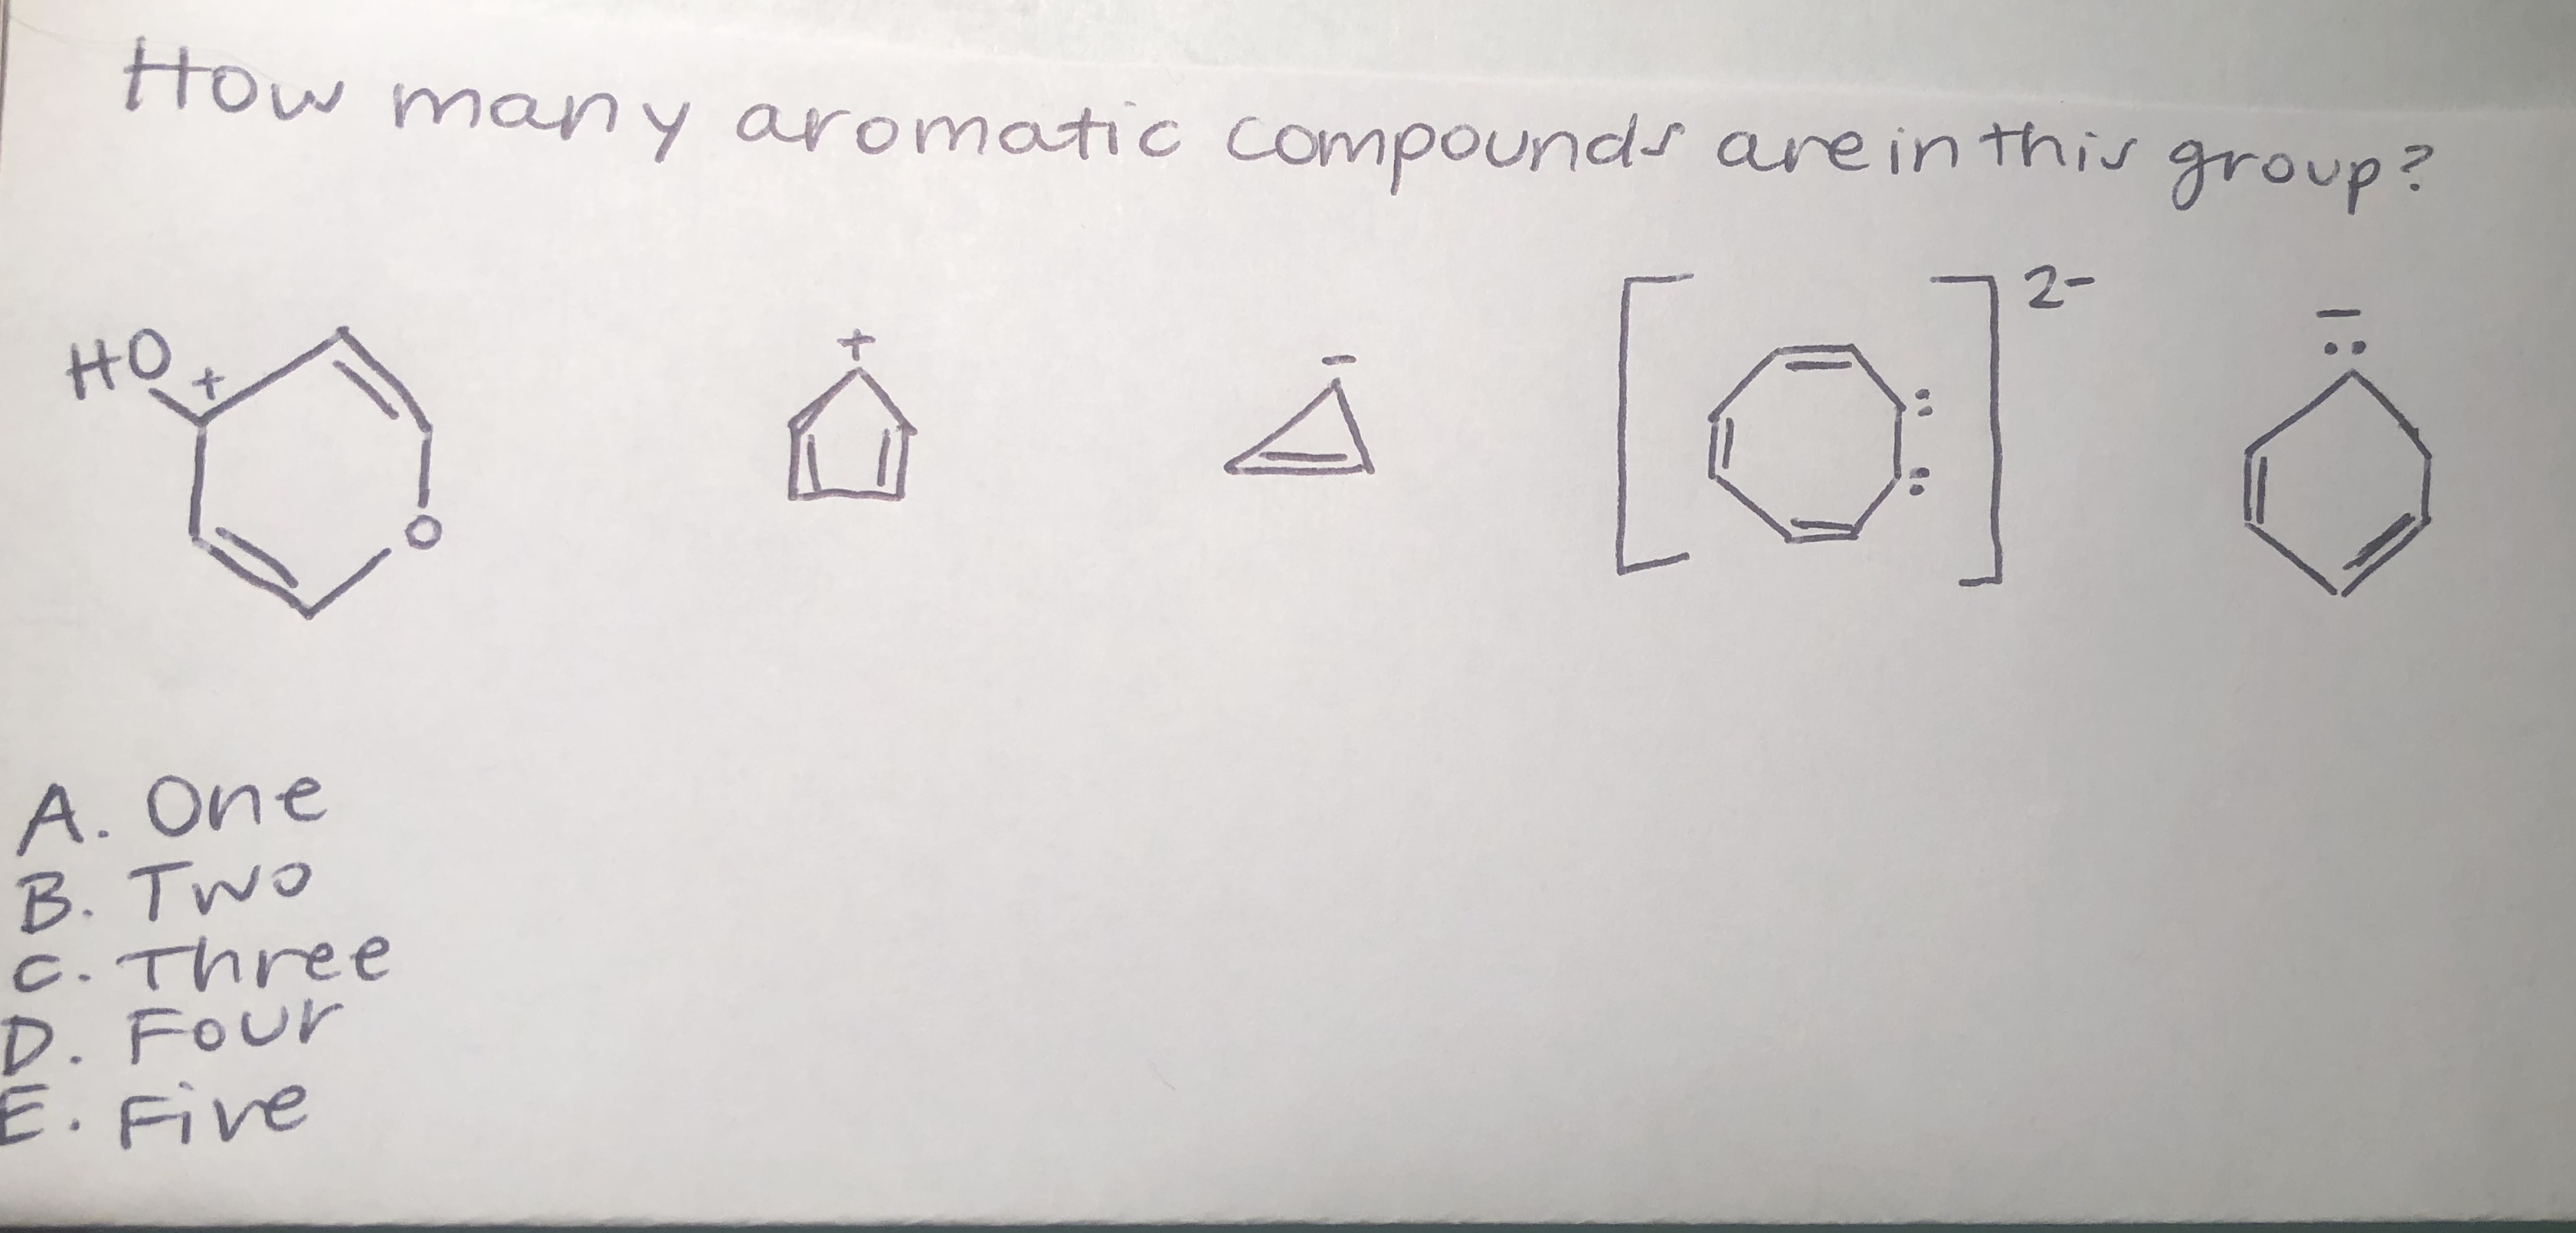 How many aromatic compounds are in this group?
2-
HO + + - -
O
A. One
B. Two
C. Three
D. Four
E. Five